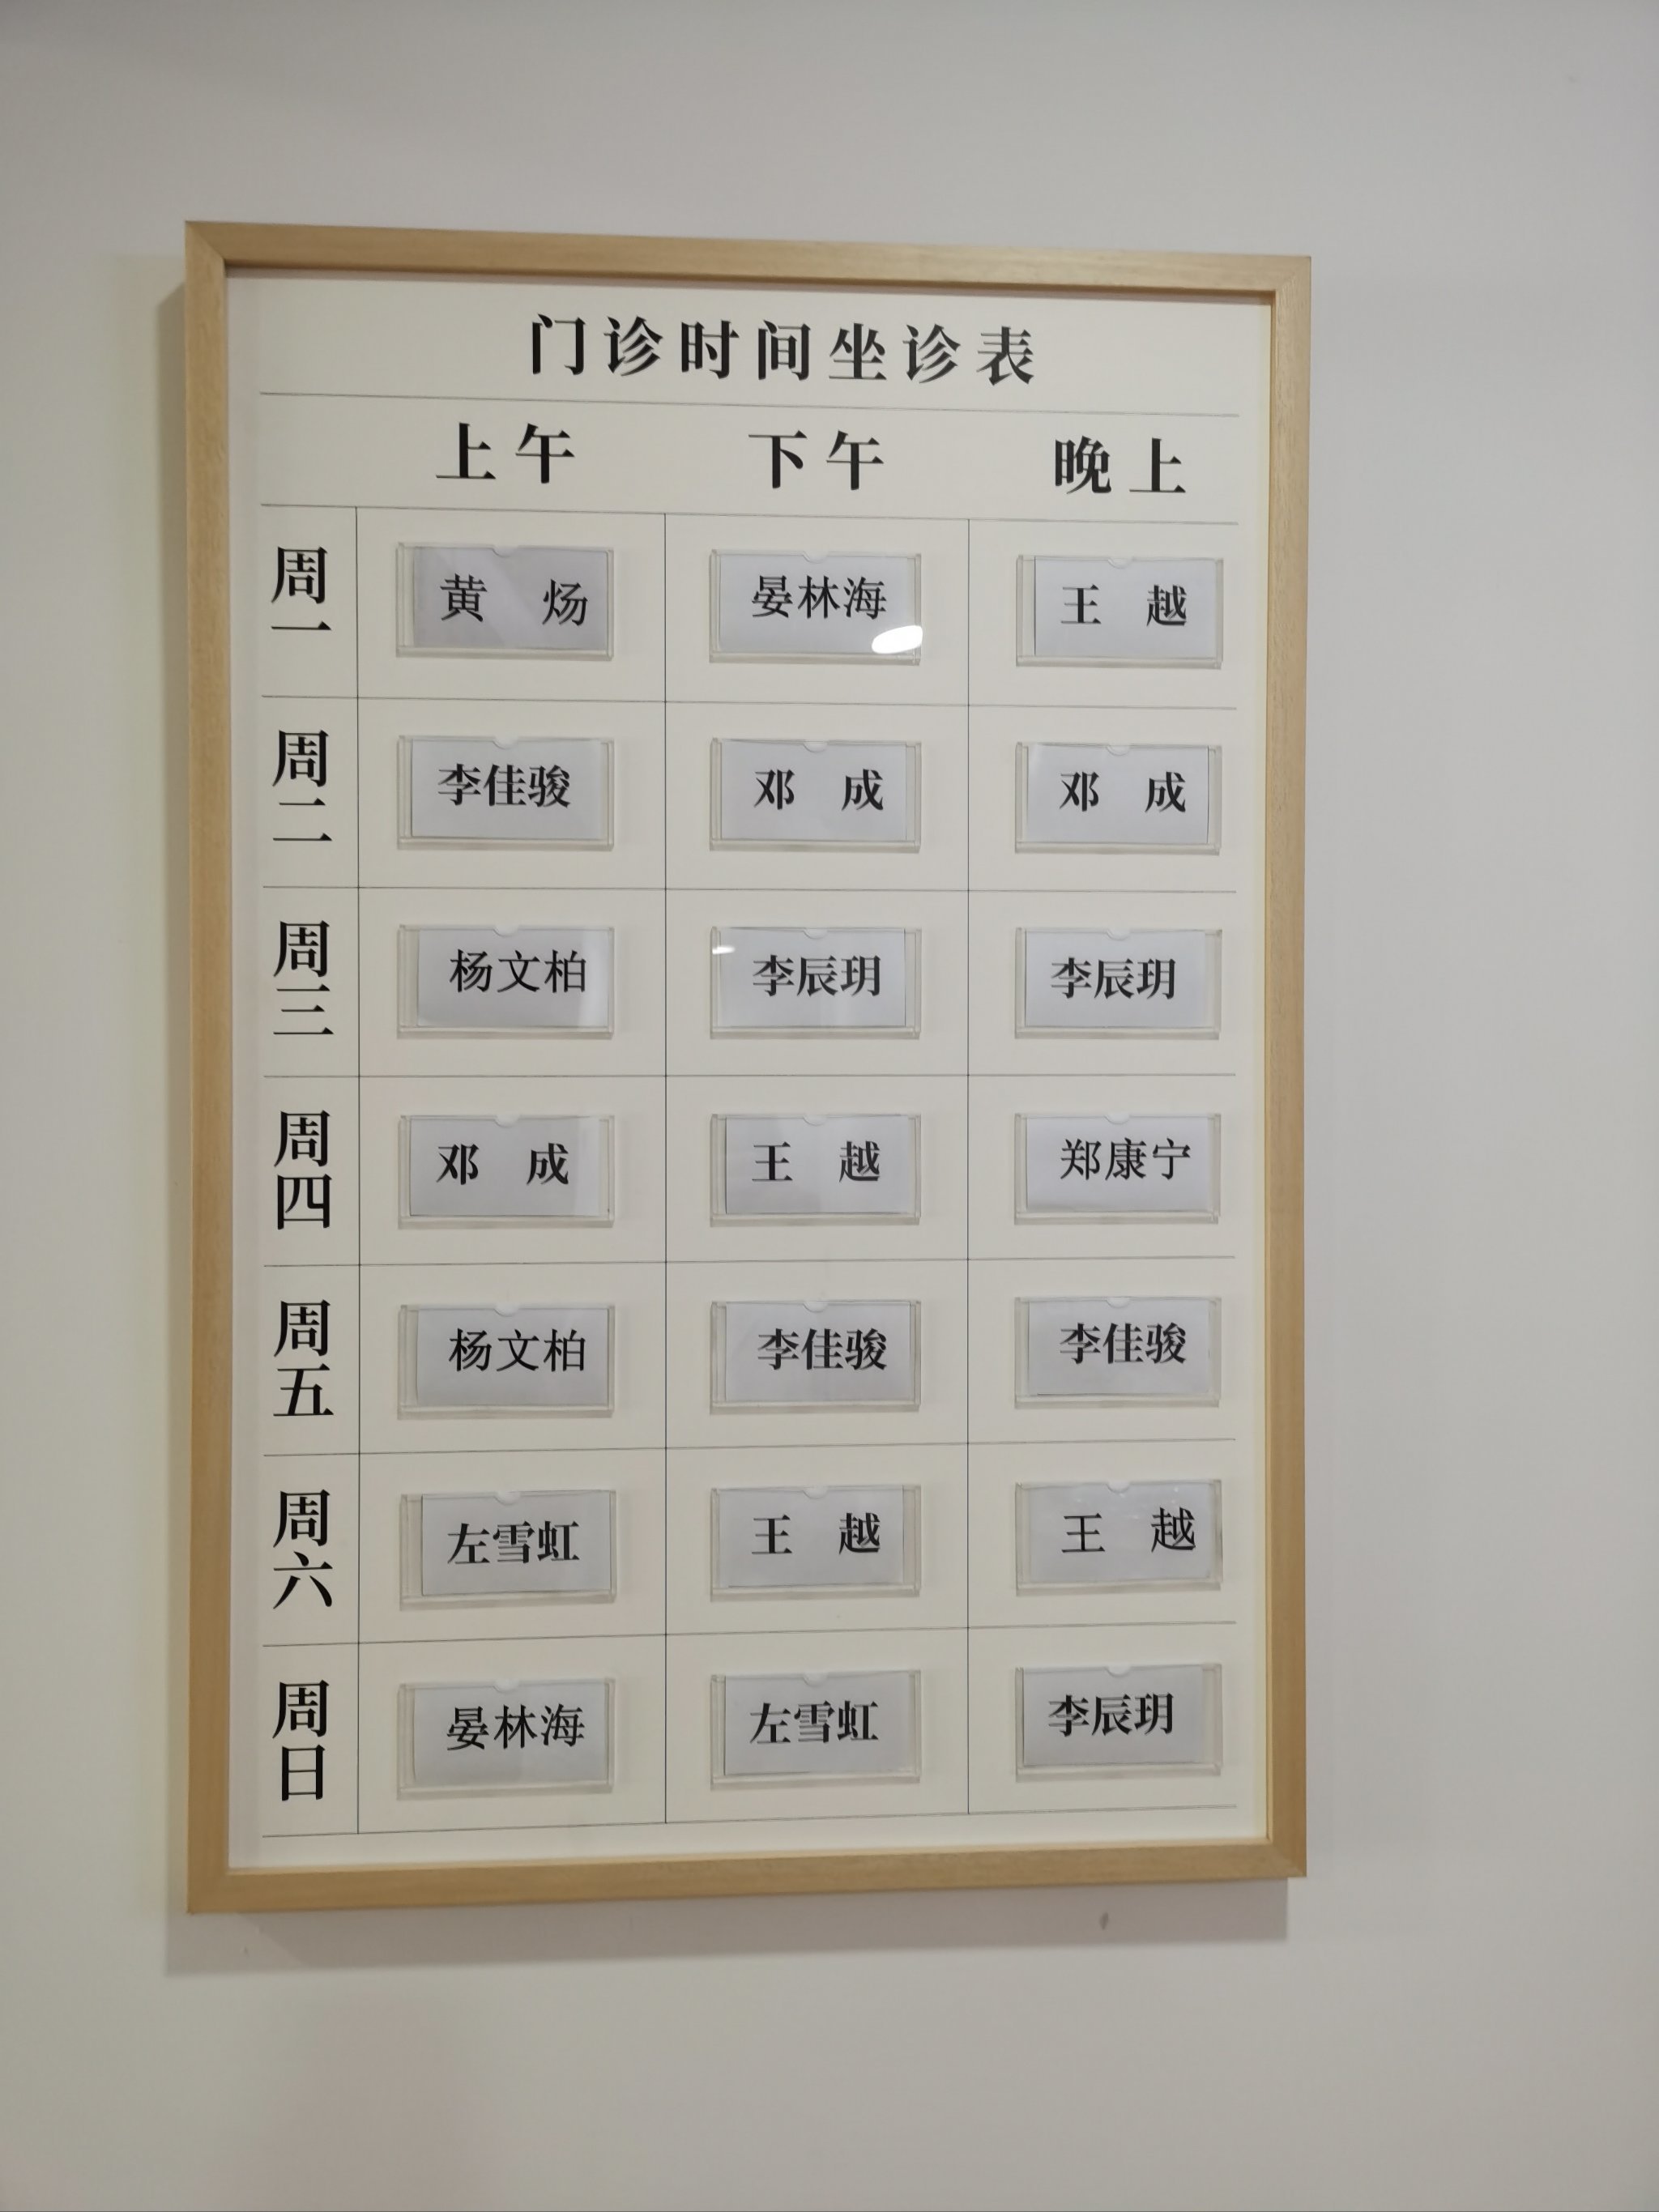 门诊时间坐诊表
上午 下午 晚上
周一 黄炀 晏林海 王越
周二 李佳骏 邓成 邓成
周三 杨文柏 李辰玥 李辰玥
周四 邓成 王越 郑康宁
周五 杨文柏 李佳骏 李佳骏
周六 左雪虹 王越 王越
周日 晏林海 左雪虹 李辰玥